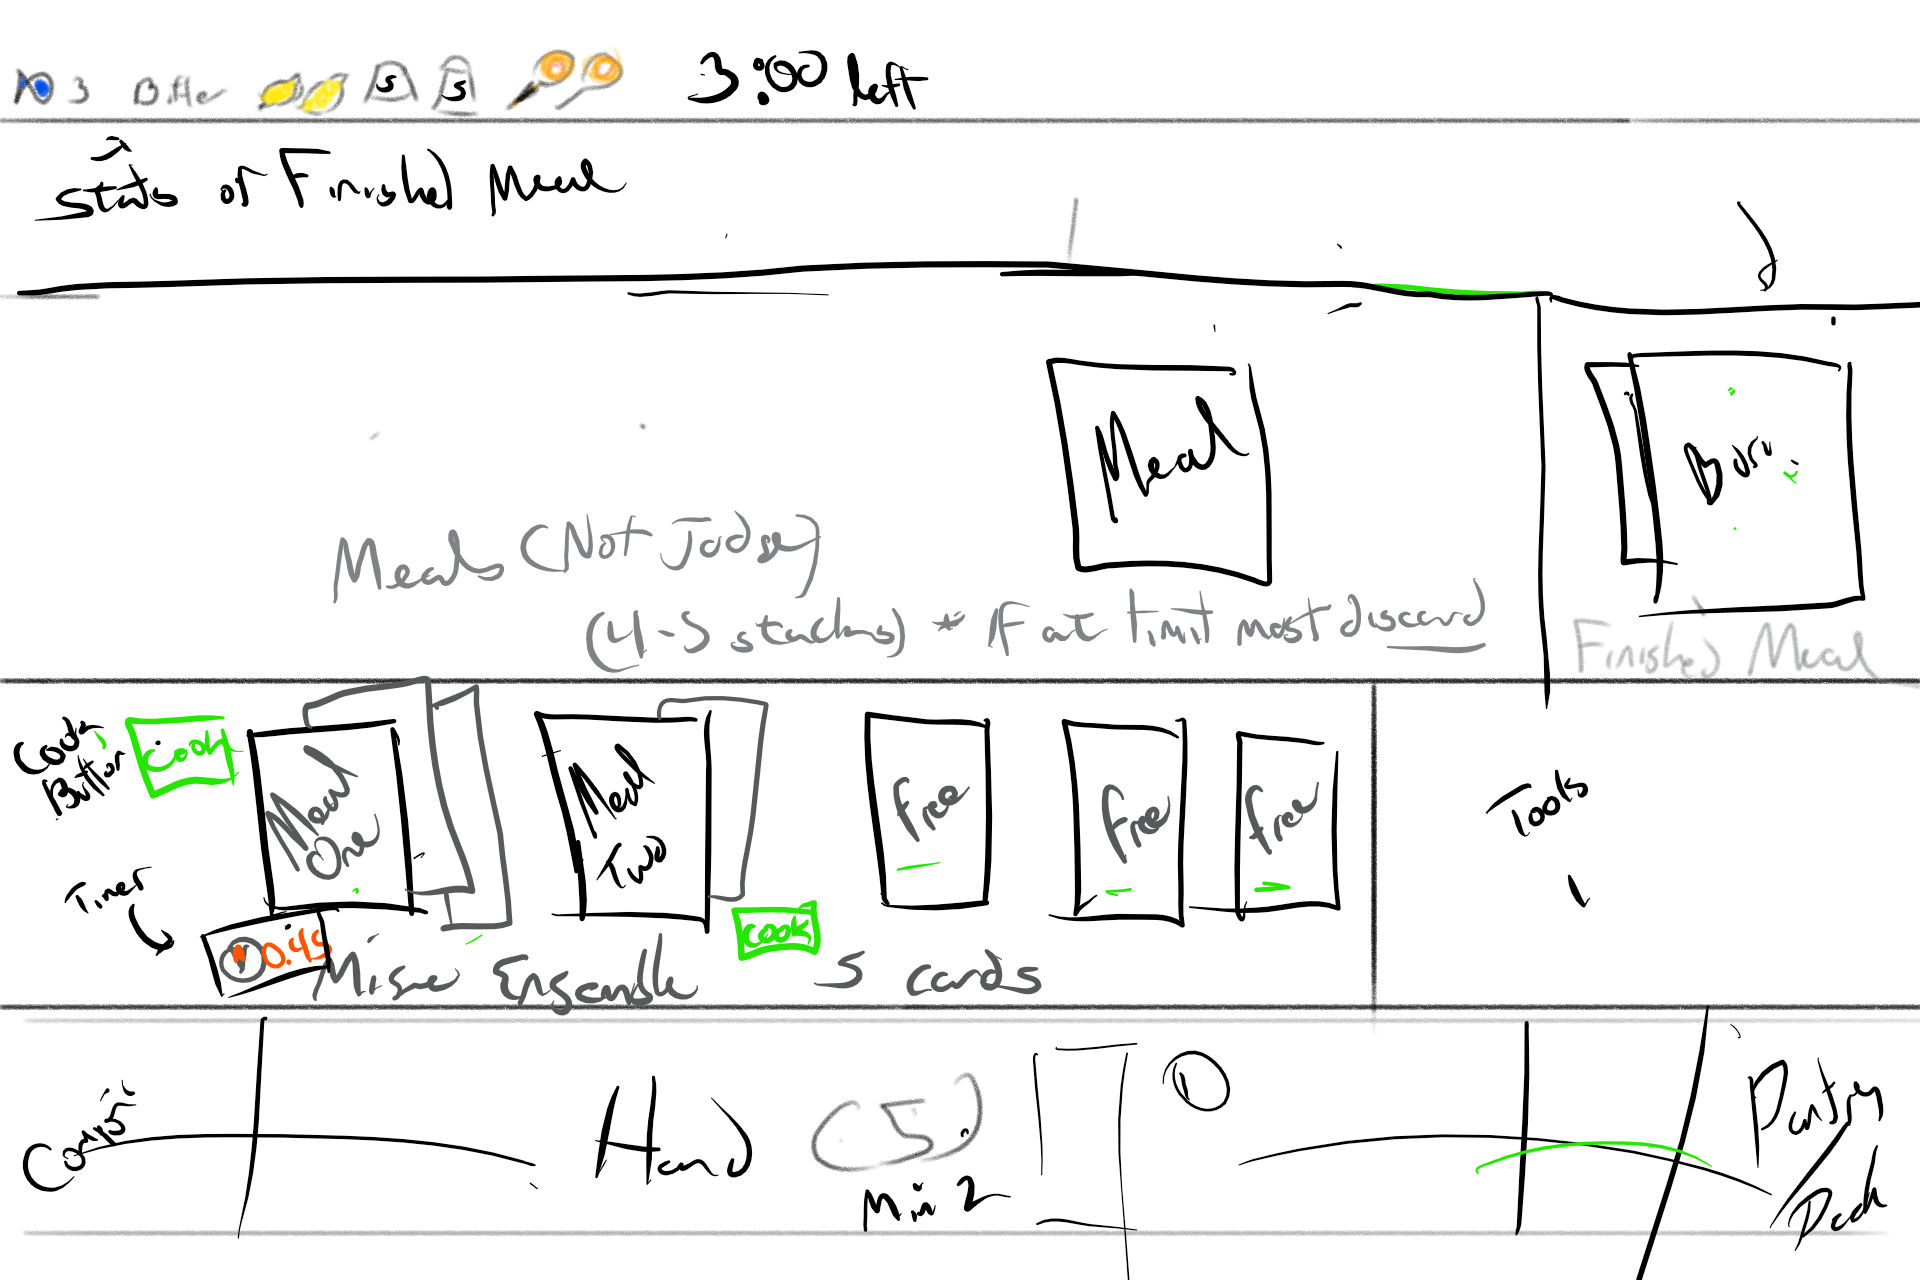 3 Bitter S S 3:00 left
Stats of Finished Meal
Meal
Meals (Not Judge)
(4-5 stacks) * IF at limit most discard
Finished Meal
Cook Button
Cook
Meal One
Meal Two
Free
Free
Free
Tools
Timer
0:45
cook
Mise Ensemble 5 cards
Compost
Hand (5)
Min 2
Pantry / Deck